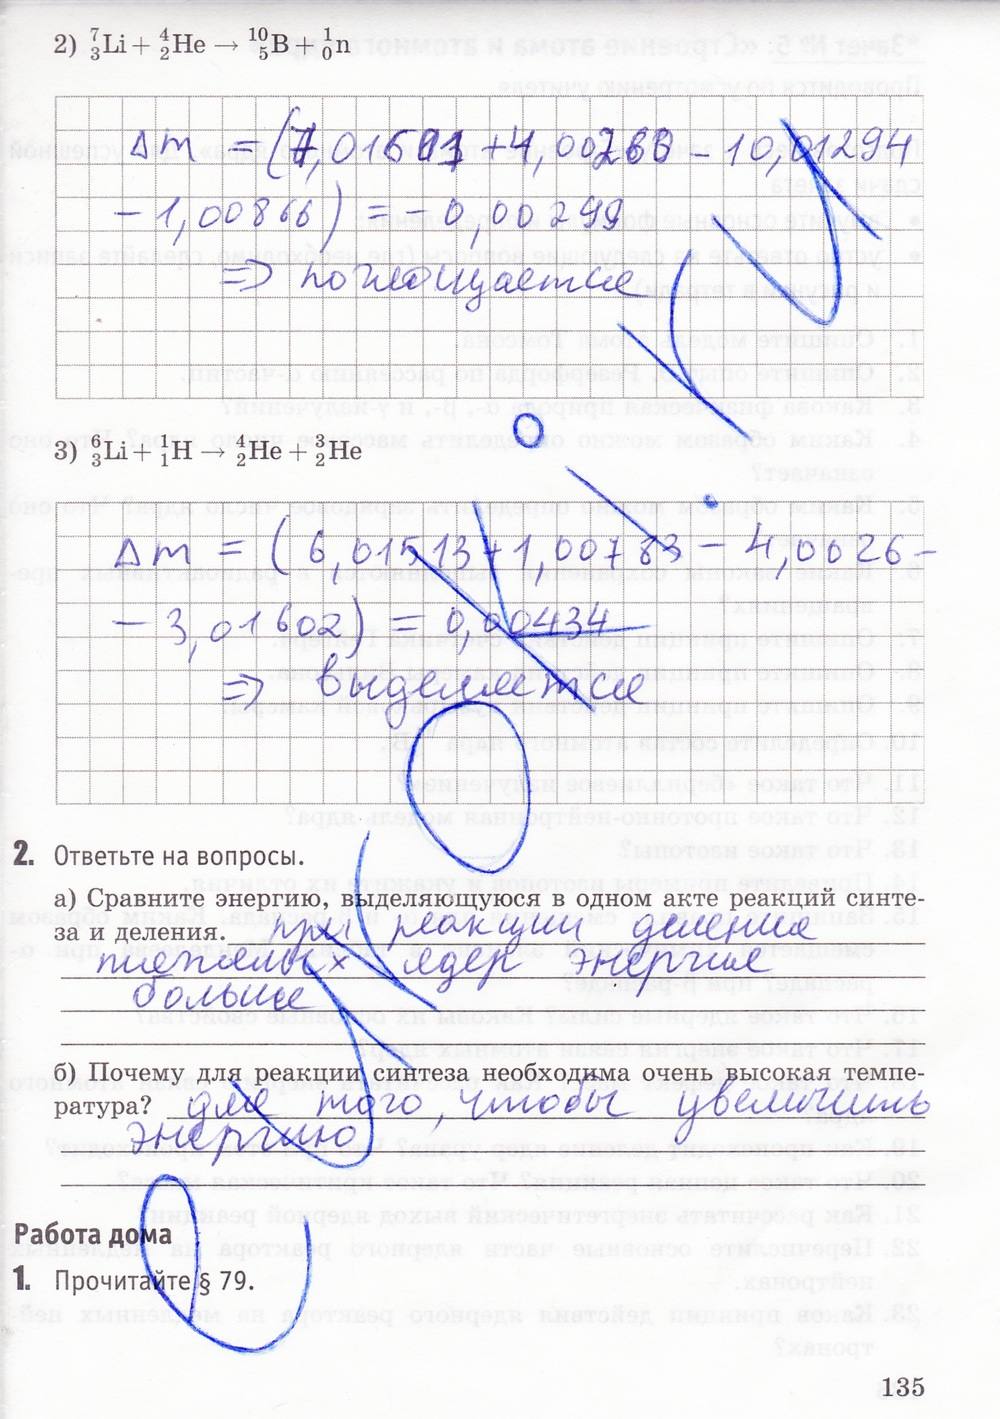 2) ⁷₃Li + ⁴₂He → ¹⁰₅B + ¹₀n
− 1,00866) = − 0,00299
⇒ поглощается
3) ⁶₃Li + ¹₁H → ⁴₂He + ³₂He
Δm = ( 6,01513 + 1,00783 − 4,0026 −
− 3,01602) = 0,00434
⇒ выделяется
2. Ответьте на вопросы.
а) Сравните энергию, выделяющуюся в одном акте реакций синте-
за и деления. при реакции деления
тяжелых ядер энергия
больше
б) Почему для реакции синтеза необходима очень высокая темпе-
ратура? для того, чтобы увеличить
энергию
Работа дома
1. Прочитайте § 79.
135